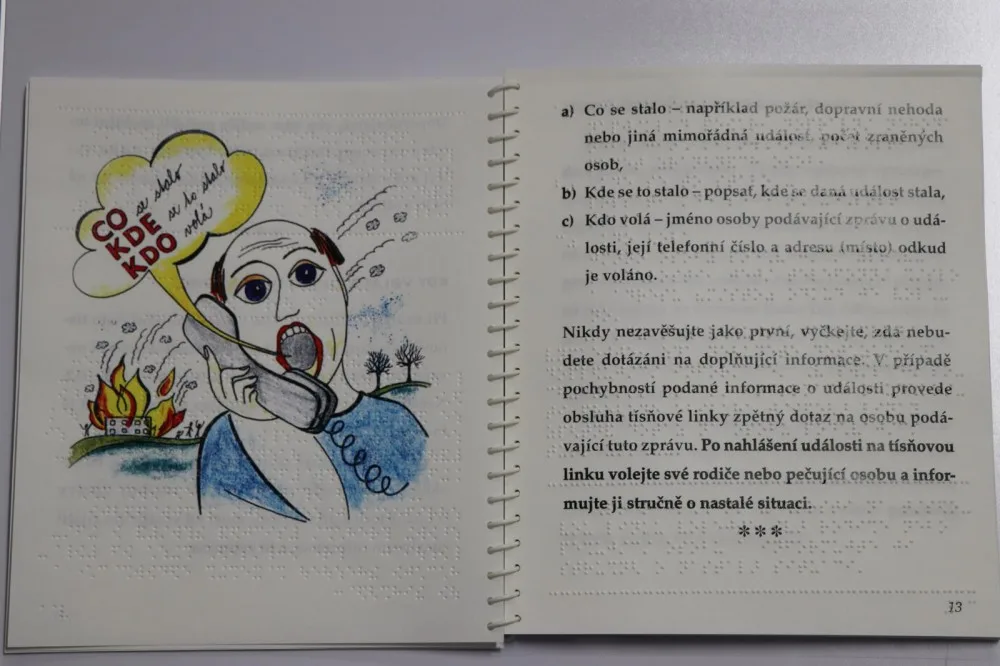 CO se stalo
KDE se to stalo
KDO volá
a) Co se stalo – například požár, dopravní nehoda
nebo jiná mimořádná událost, počet zraněných
osob,
b) Kde se to stalo – popsat, kde se daná událost stala,
c) Kdo volá – jméno osoby podávající zprávu o udá-
losti, její telefonní číslo a adresu (místo) odkud
je voláno.
Nikdy nezavěšujte jako první, vyčkejte, zda nebu-
dete dotázáni na doplňující informace. V případě
pochybností podané informace o události provede
obsluha tísňové linky zpětný dotaz na osobu podá-
vající tuto zprávu. Po nahlášení události na tísňovou
linku volejte své rodiče nebo pečující osobu a infor-
mujte ji stručně o nastalé situaci.
***
13